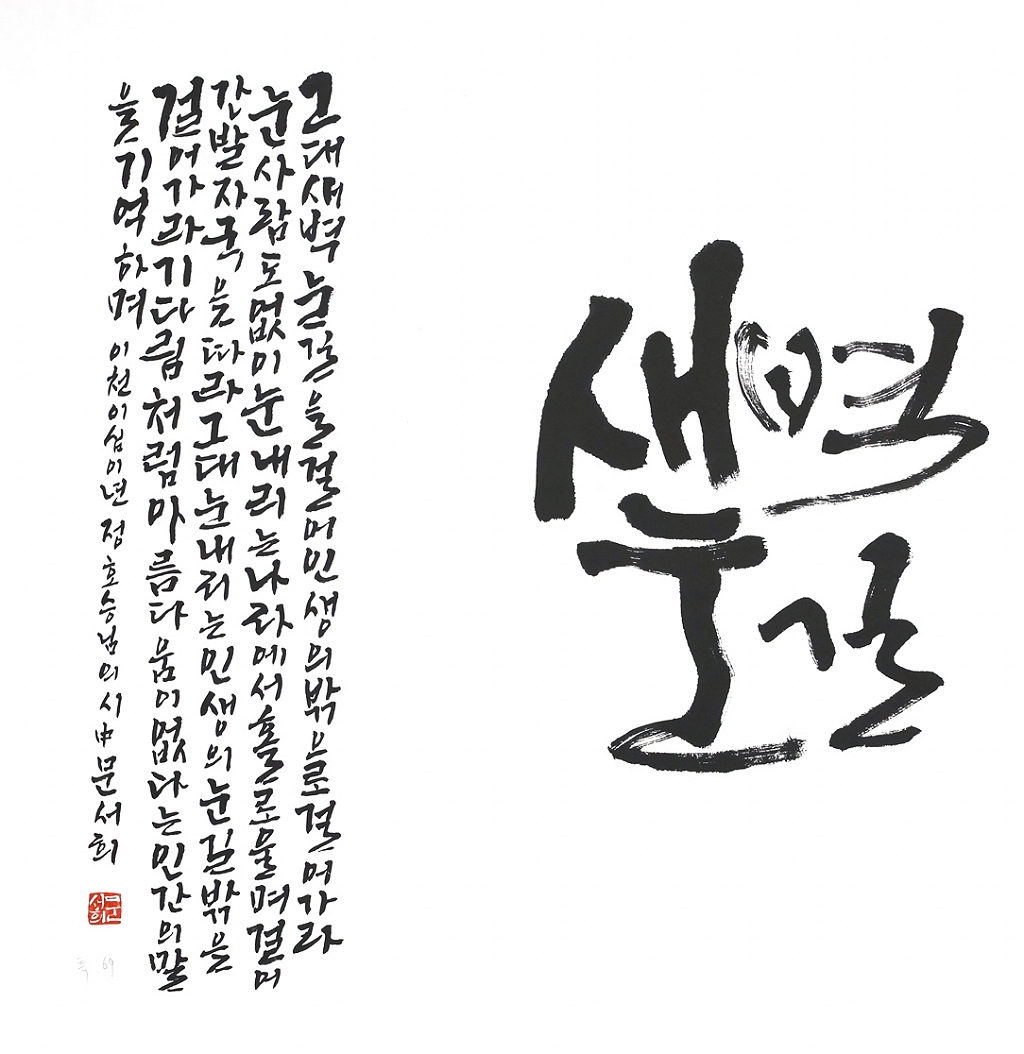 새벽
눈길
그대새벽눈길을걸어인생의밖으로걸어가라
눈사람도없이눈내리는나라에서홀로울며걸어
간발자국을따라그대눈내리는인생의눈길밖을
걸어가라기다림처럼아름다움이없다는인간의말
을기억하며 이천이십이년 정호승님의시中 문서희
서희
69